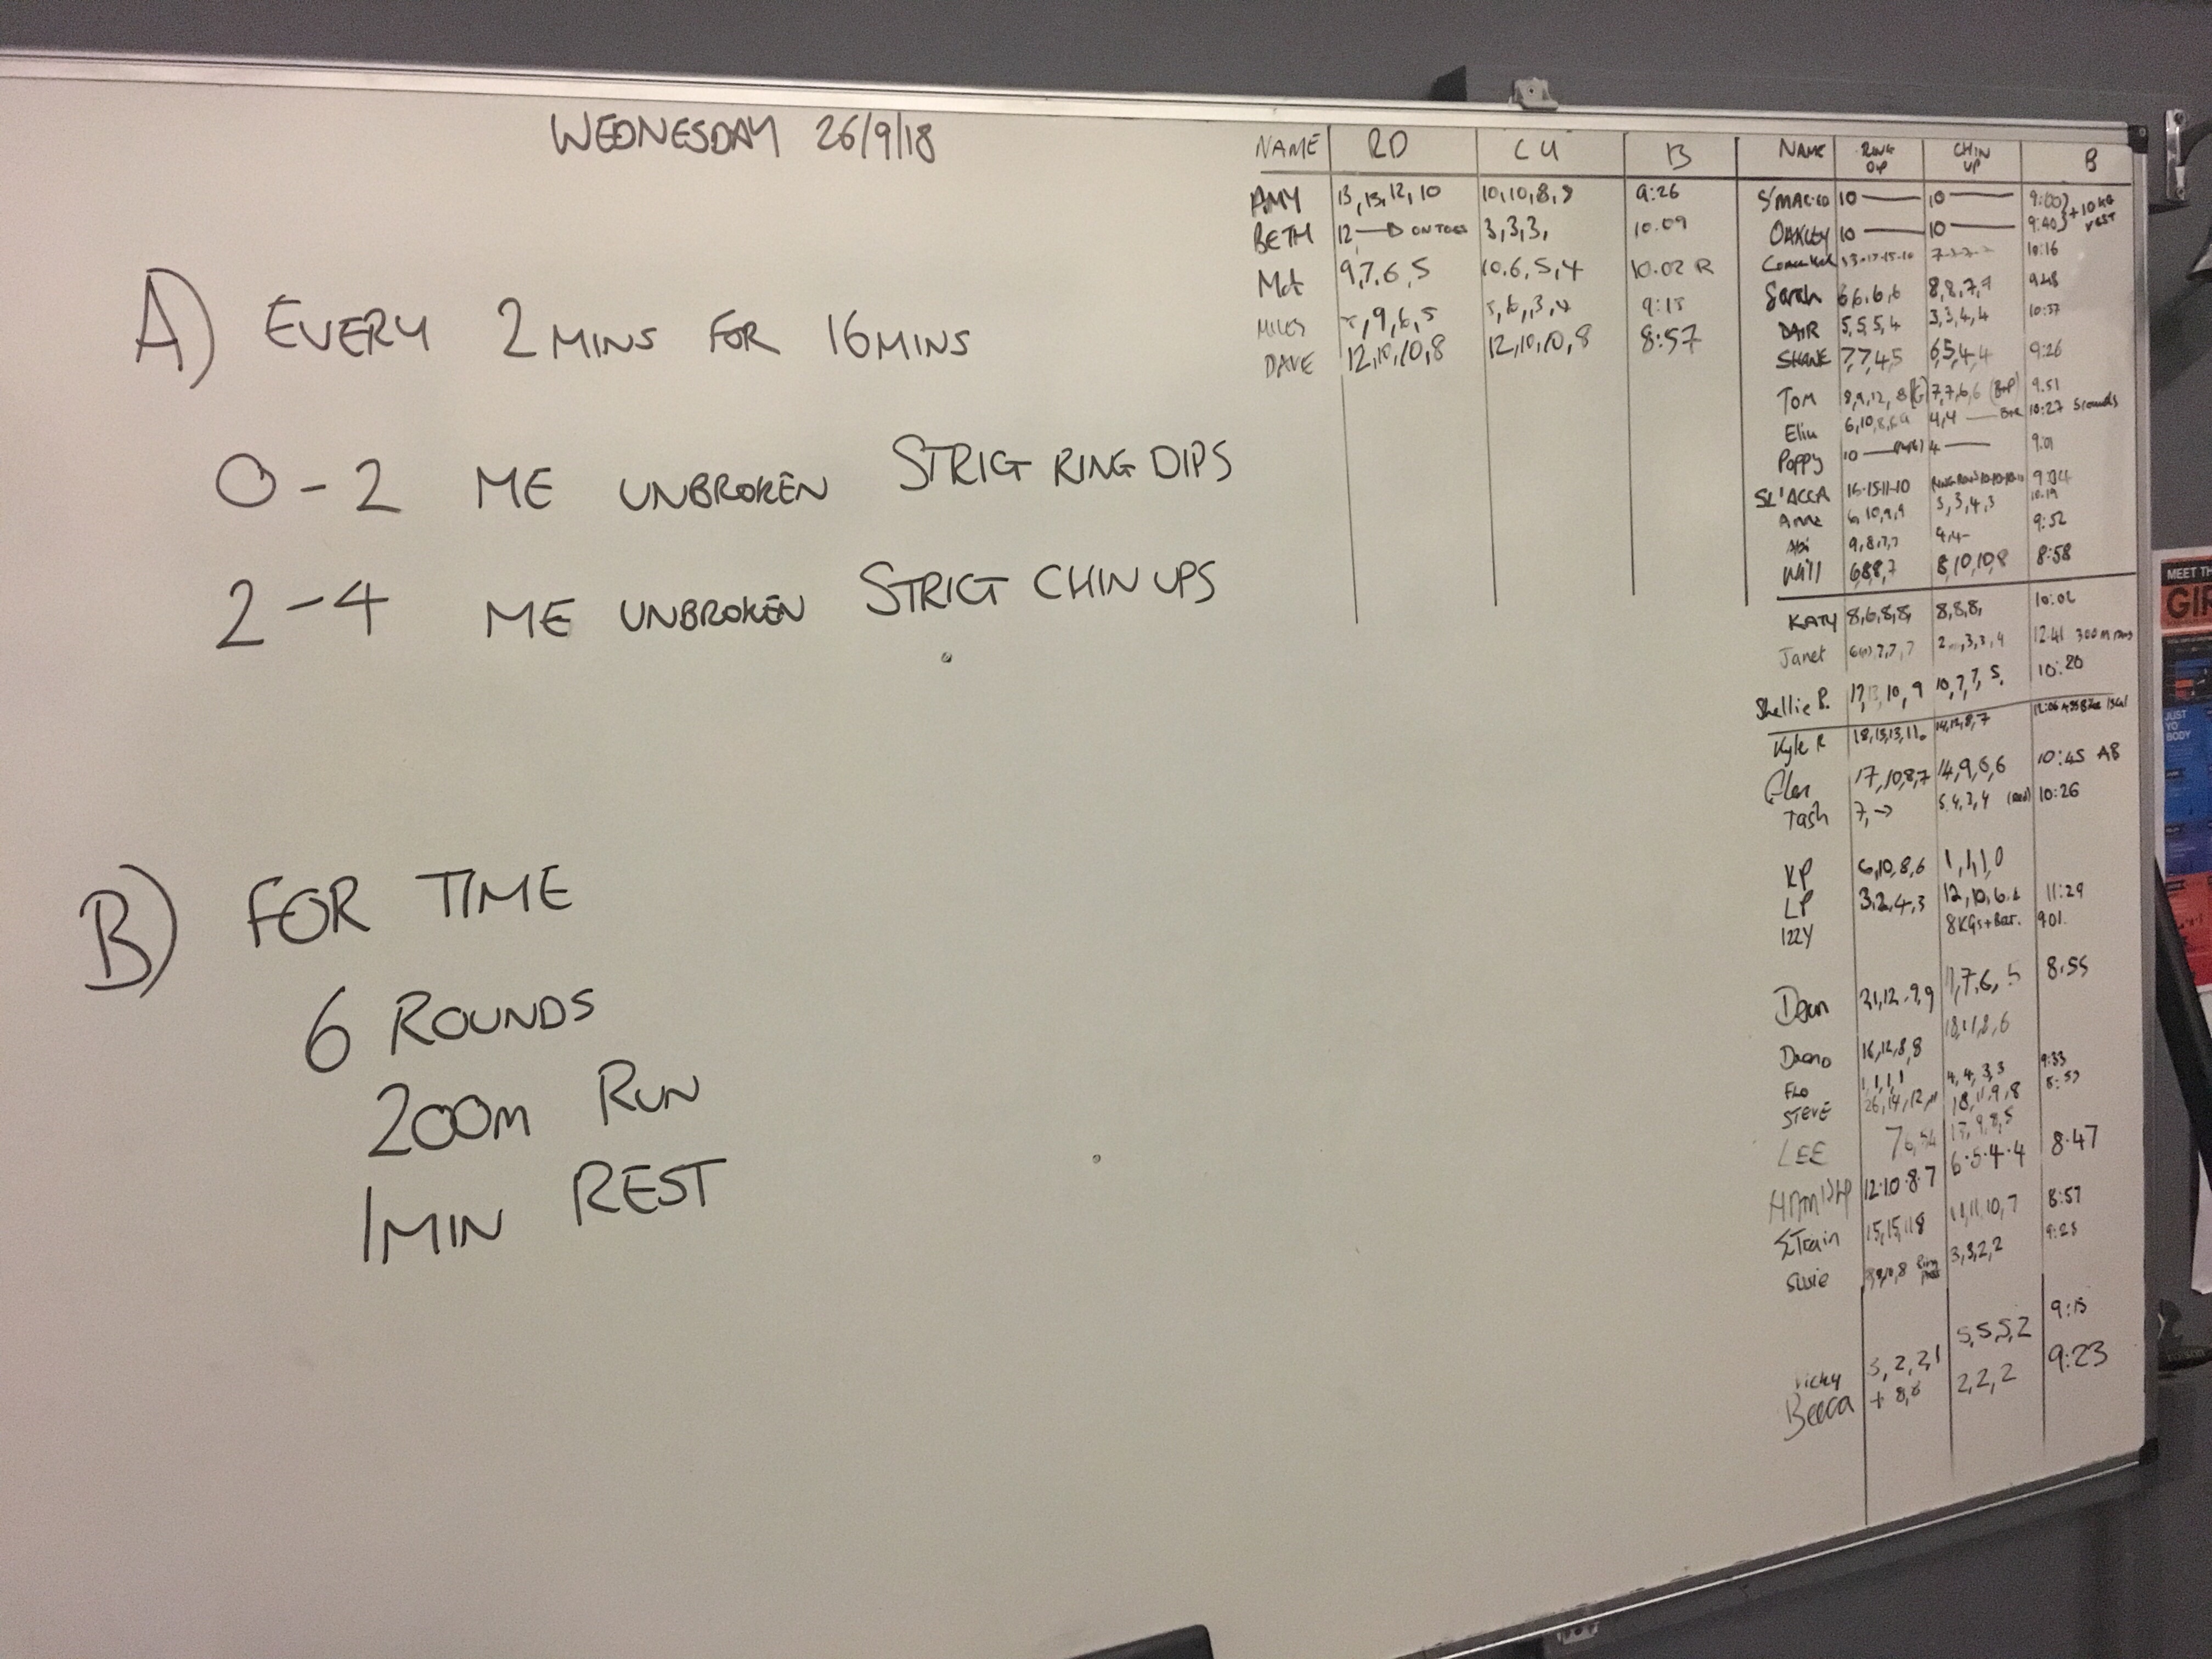 WEDNESDAY 26/9/18
A) EVERY 2 MINS FOR 16 MINS
0-2 ME UNBROKEN STRICT RING DIPS
2-4 ME UNBROKEN STRICT CHIN UPS
B) FOR TIME
6 ROUNDS
200m RUN
1 MIN REST
NAME RD CU B
AMY 13, 13, 12, 10 10, 10, 8, 9:26
BETH 12 ON TOES 3, 3, 3, 10.09
9, 7, 6, 5 10, 6, 5, 4 10.02 R
MILES 9, 6, 5 9:15
DAVE 12, 10, 10, 8 12, 10, 10, 8 8:57
NAME RING DIP CHIN UP B
S'MACCO 10 10 9:00 } +10 KG VEST
OAKLEY 10 10 9:40
10:16
Sarah 6, 6, 6, 6 8, 8, 7, 9:48
DAIR 5, 5, 5, 4 3, 3, 4, 4 10:37
SHANE 7, 7, 4, 5 6, 5, 4, 4 9:26
TOM 8, 9, 12, 8 7, 7, 6, 6 9.51
6, 10, 8, 4, 4 10:27 5 rounds
Poppy 10 4 9:01
SL'ACCA 16-15-11-10
Anna 6, 10, 9, 9 3, 3, 4, 3 10:19
Abi 9, 8, 7, 7 4, 4 9:52
Will 6, 8, 8, 7 8, 10, 10, 8 8:58
KATY 8, 6, 8, 8, 8, 8, 8, 10:02
Janet 7, 7, 7 3, 3, 4 12:41 300m
Shellie P. 10, 9 10, 7, 7, 5. 10:20
Kyle R 18, 13, 13, 11. 14, 12, 8, 7 12:06
17, 10, 8, 7 14, 9, 6, 6 10:45 AB
Tash 7, → 5, 4, 3, 4 (Red) 10:26
KP 6, 10, 8, 6 1, 1, 1, 0
LP 3, 2, 4, 3 12, 10, 6, 11:29
IZZY 8KGs + Bar. 901.
Dean 21, 12, 9, 9 7, 6, 5 8:55
16, 12, 8, 8 18, 11, 8, 6
FLO 1, 1, 1, 1 4, 4, 3, 3 9:33
STEVE 26, 14, 12, 18, 11, 9, 8
LEE 9, 8, 5
12.10.8.7 6.5.4.4 8.47
ETrain 11, 11, 10, 7 8:57
Susie 3, 3, 2, 2
Vicky 3, 2, 2, 1 5, 5, 5, 2 9:15
Becca 2, 2, 2 9:23
MEET TH
GIR
JUST
YO
BODY